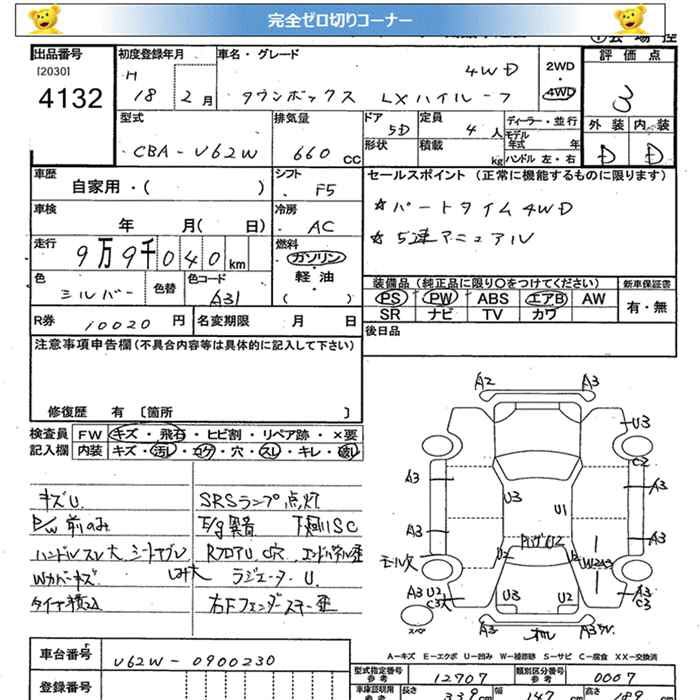 完全ゼロ切りコーナー
出品番号
[2030]
4132
初度登録年月
H
18 年 2月
車名・グレード
4WD
タウンボックス LXハイルーフ
2WD
・
4WD
評価点
3
外装 内装
D D
型式
CBA-U62W
排気量
660 CC
ドア
5D
形状
定員
4 人
積載
kg
ディーラー・並行
モデル年式 年
ハンドル 左・右
車歴
自家用・( )
シフト
F5
車検
年 月( 日)
冷房
AC
走行
9万9千040km
燃料
ガソリン
・
軽油
( )
色
シルバー
色替
色コード
A31
セールスポイント (正常に機能するものに限ります)
☆パートタイム4WD
☆5速マニュアル
装備品 (純正品に限り○をつけてください)
PS PW ABS エアB AW
SR ナビ TV カワ
新車保証書
有・無
R券 10020 円
名変期限 月 日
後日品
注意事項申告欄(不具合内容等は具体的に記入して下さい)
修復歴 有 〔箇所 〕
検査員
記入欄
FW キズ・飛石・ヒビ割・リペア跡・×要
内装 キズ・汚レ・コゲ・穴・スレ・キレ・破レ
キズU.
P/W 前のみ
ハンドルスレ大 シートヤブレ
シミ大
Wカバーキズ
タイヤ積込
SRSランプ点灯
E/g異音 下廻りSC
RフロアU.穴 エンドパネル歪
ラジエーターU.
右Fフェンダーステー歪
A2 A3
U3
C2
A3 A3
U3 U1
A3 A3
モール欠
U2
W2A3
A3 U2
C3
U3 U2
A3
C3
スペア
A3
A3
A-キズ E-エクボ U-凹み W-補修跡 S-サビ C-腐食 XX-交換済
車台番号
U62W-0900230
登録番号
型式指定番号
参考
12707
類別区分番号
参考
0007
車庫証明用
参考
長さ 339 cm
幅 147 cm
高さ 189 cm